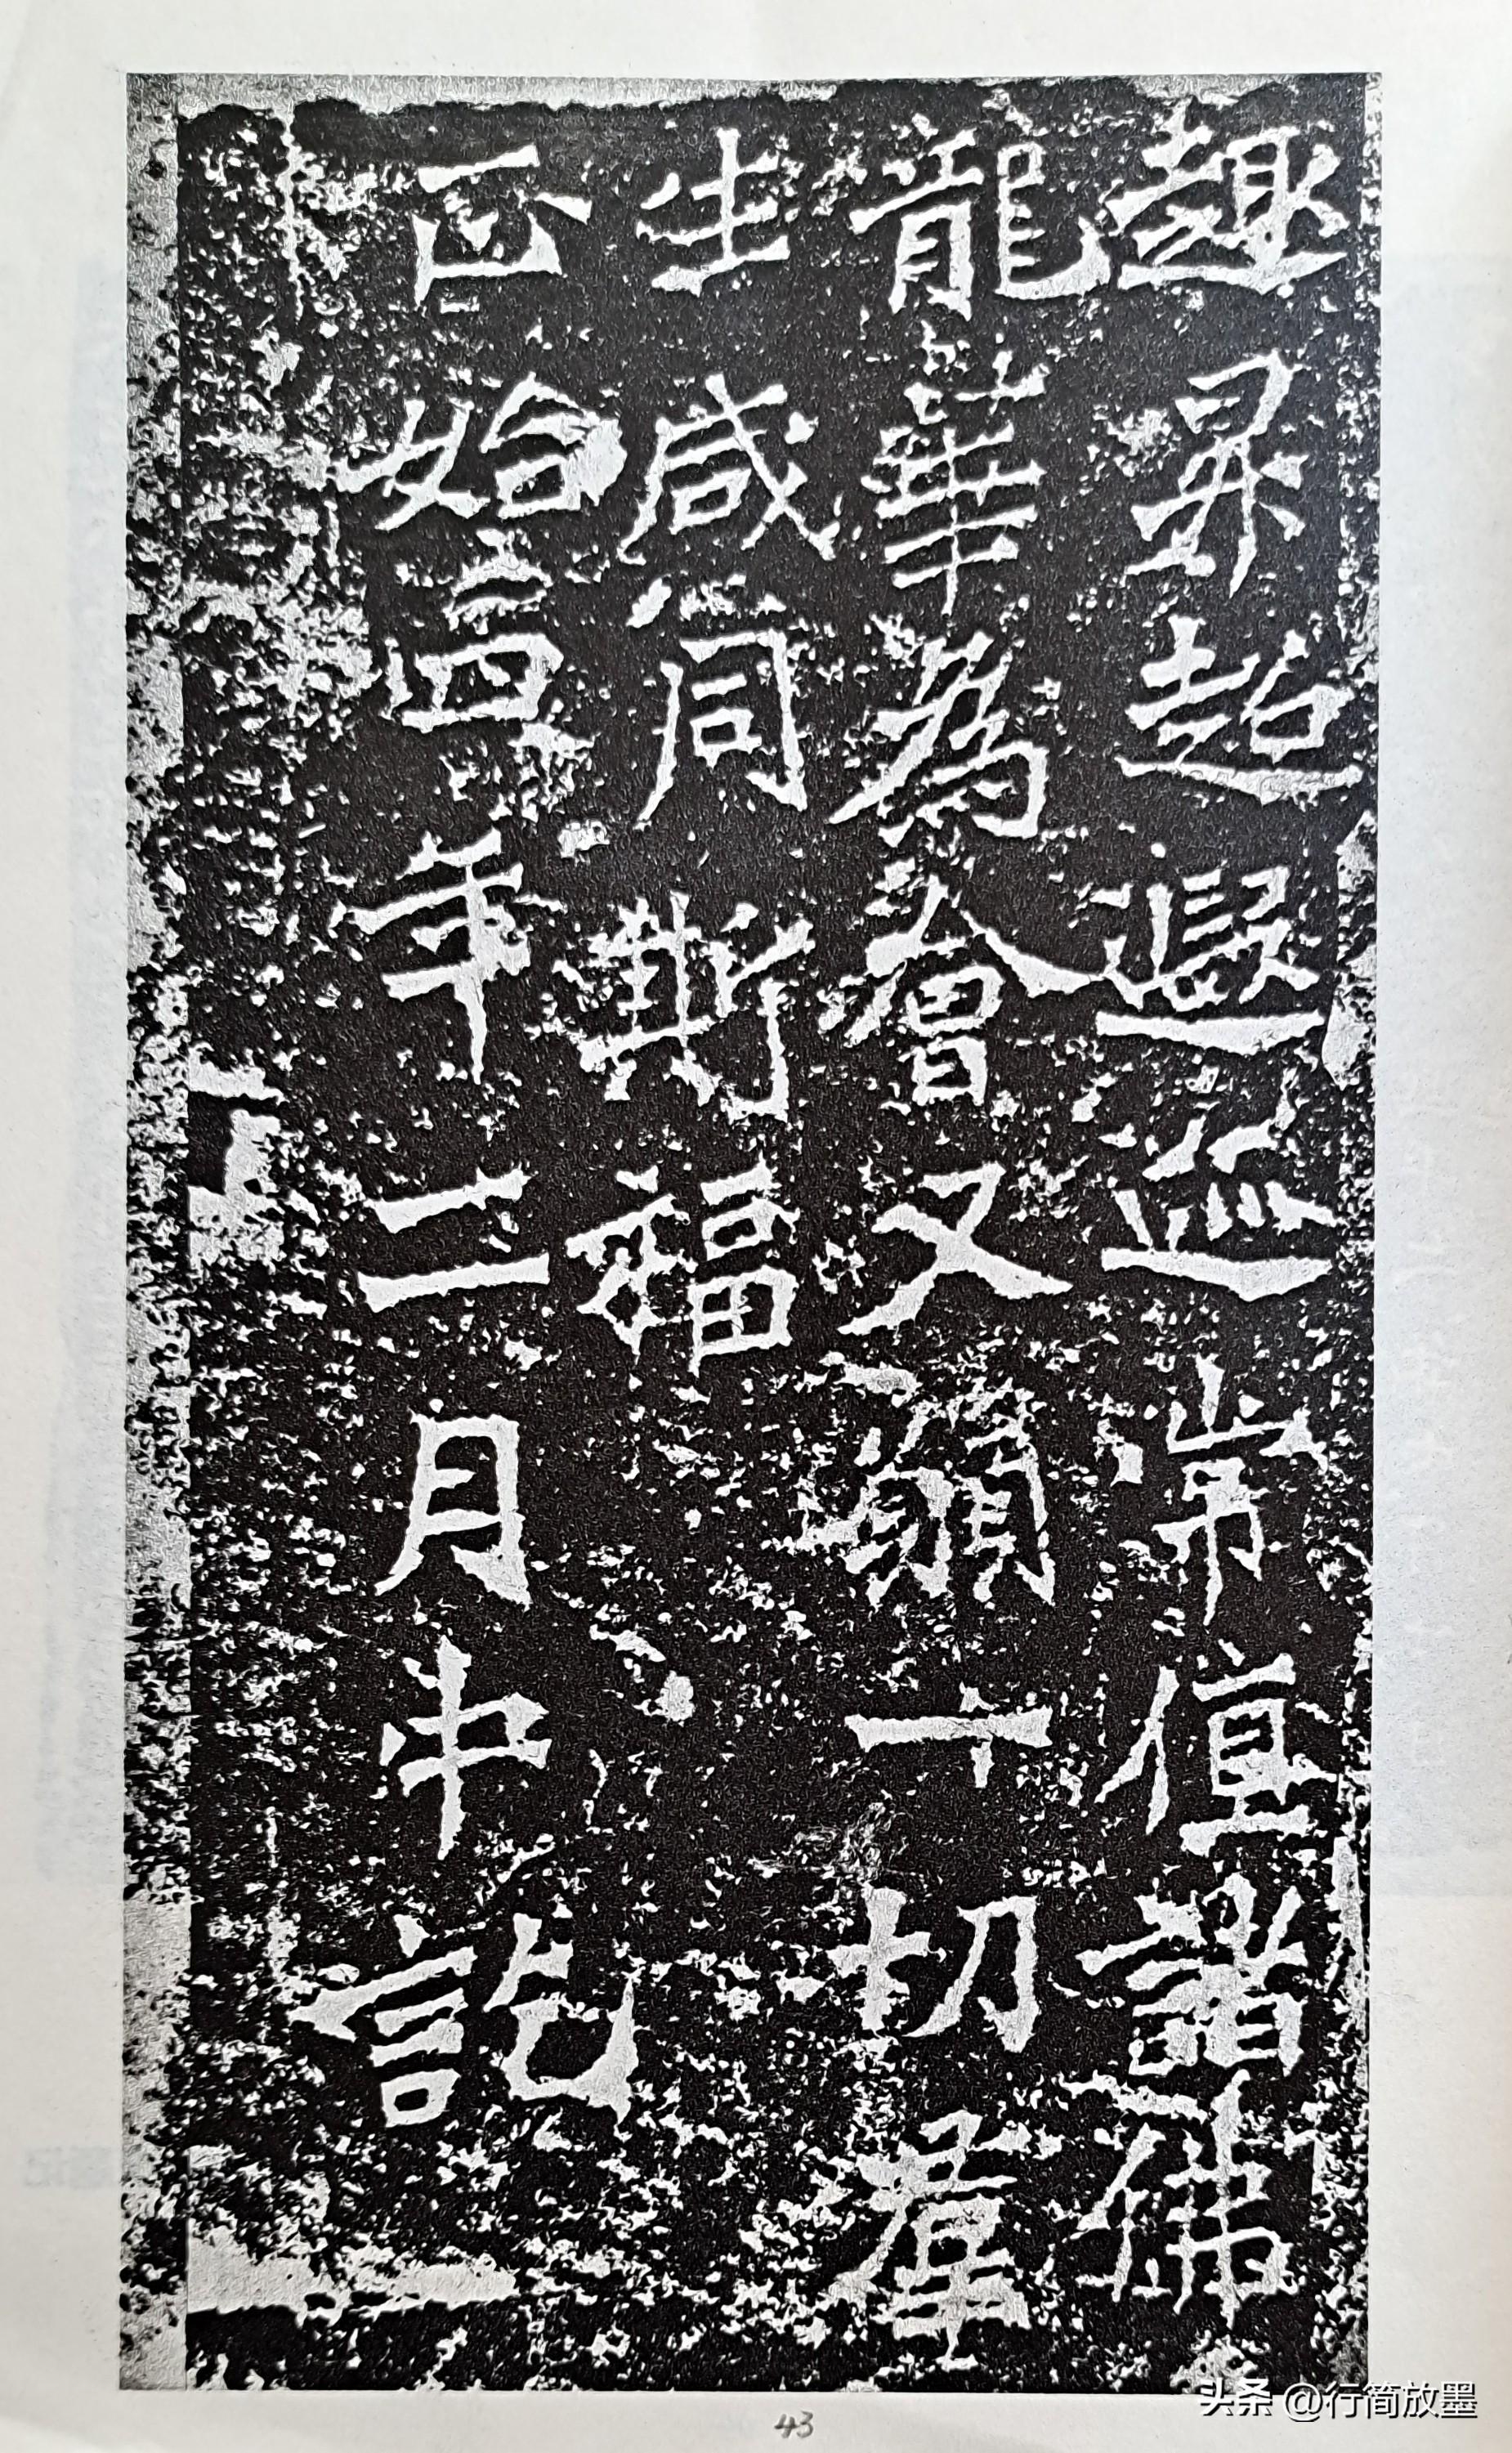 趣昇超遐迹常值諸佛
龍華為會又願一切羣
生咸同斯福
正始四年二月中訖
43
头条 @行简放墨